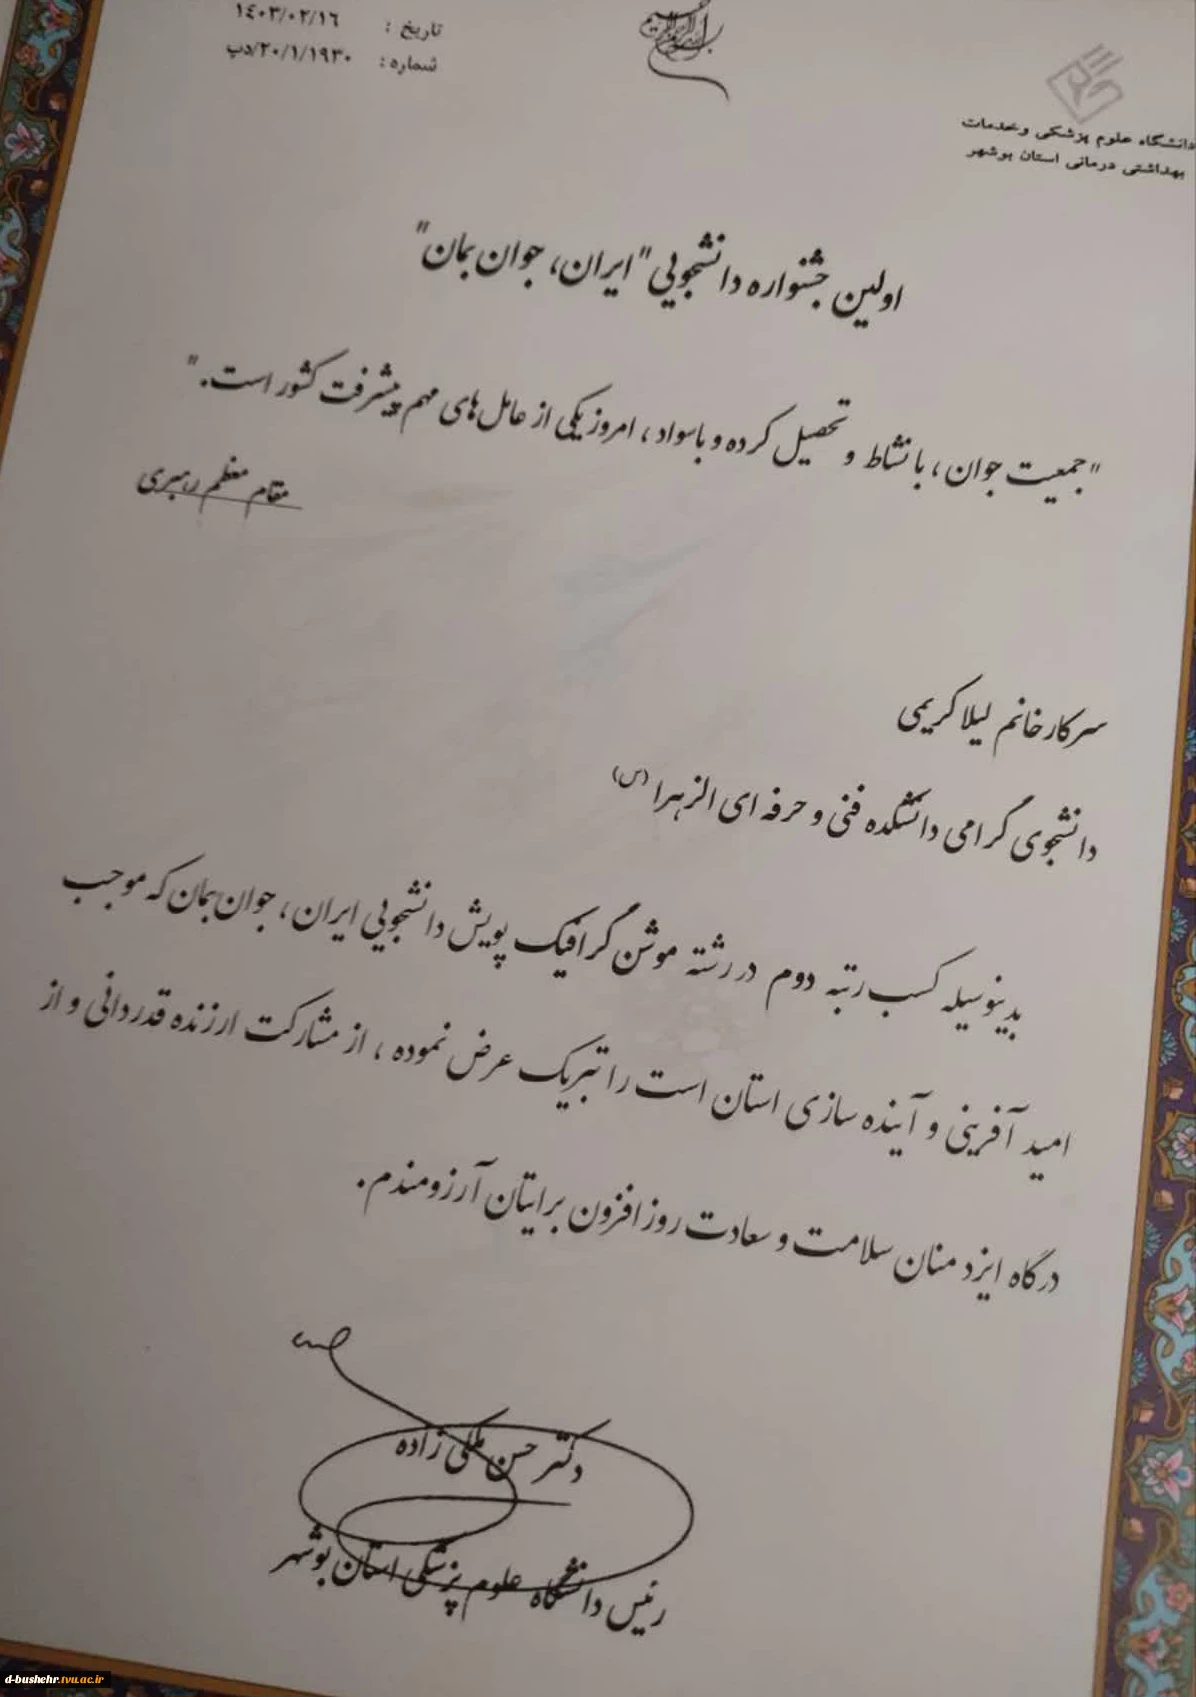 بسم الله الرحمن الرحیم
تاریخ : ۱۴۰۳/۰۲/۱۶
شماره : ۲۰/۱/۱۹۳۰/دپ
دانشگاه علوم پزشکی وخدمات
بهداشتی درمانی استان بوشهر
اولین جشنواره دانشجویی "ایران، جوان بمان"
"جمعیت جوان، بانشاط و تحصیل کرده و باسواد، امروز یکی از عامل‌های مهم پیشرفت کشور است."
مقام معظم رهبری
سرکارخانم لیلا کریمی
دانشجوی گرامی دانشکده فنی و حرفه ای الزهرا (س)
بدینوسیله کسب رتبه دوم در رشته موشن گرافیک پویش دانشجویی ایران، جوان بمان که موجب
امید آفرینی و آینده سازی استان است را تبریک عرض نموده، از مشارکت ارزنده قدردانی و از
درگاه ایزد منان سلامت و سعادت روزافزون برایتان آرزومندم.
دکتر حسن ملکی زاده
رئیس دانشگاه علوم پزشکی استان بوشهر
d-bushehr.tvu.ac.ir